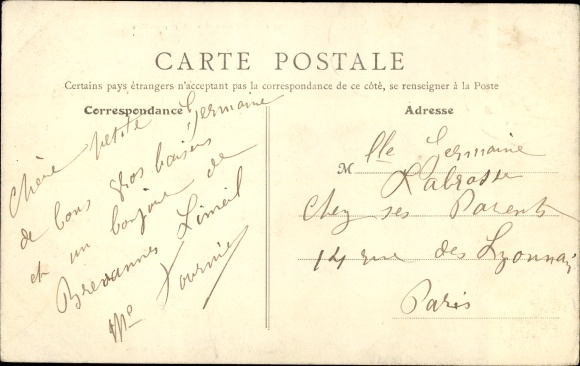 CARTE POSTALE
Certains pays étrangers n'acceptant pas la correspondance de ce côté, se renseigner à la Poste
Correspondance
Chère petite Germaine
de bons gros baisers
et un bonjour de
Brevannes Limeil
Me Fournier
Adresse
Mlle Germaine
Labrosse
Chez ses Parents
14 rue des Lyonnais
Paris